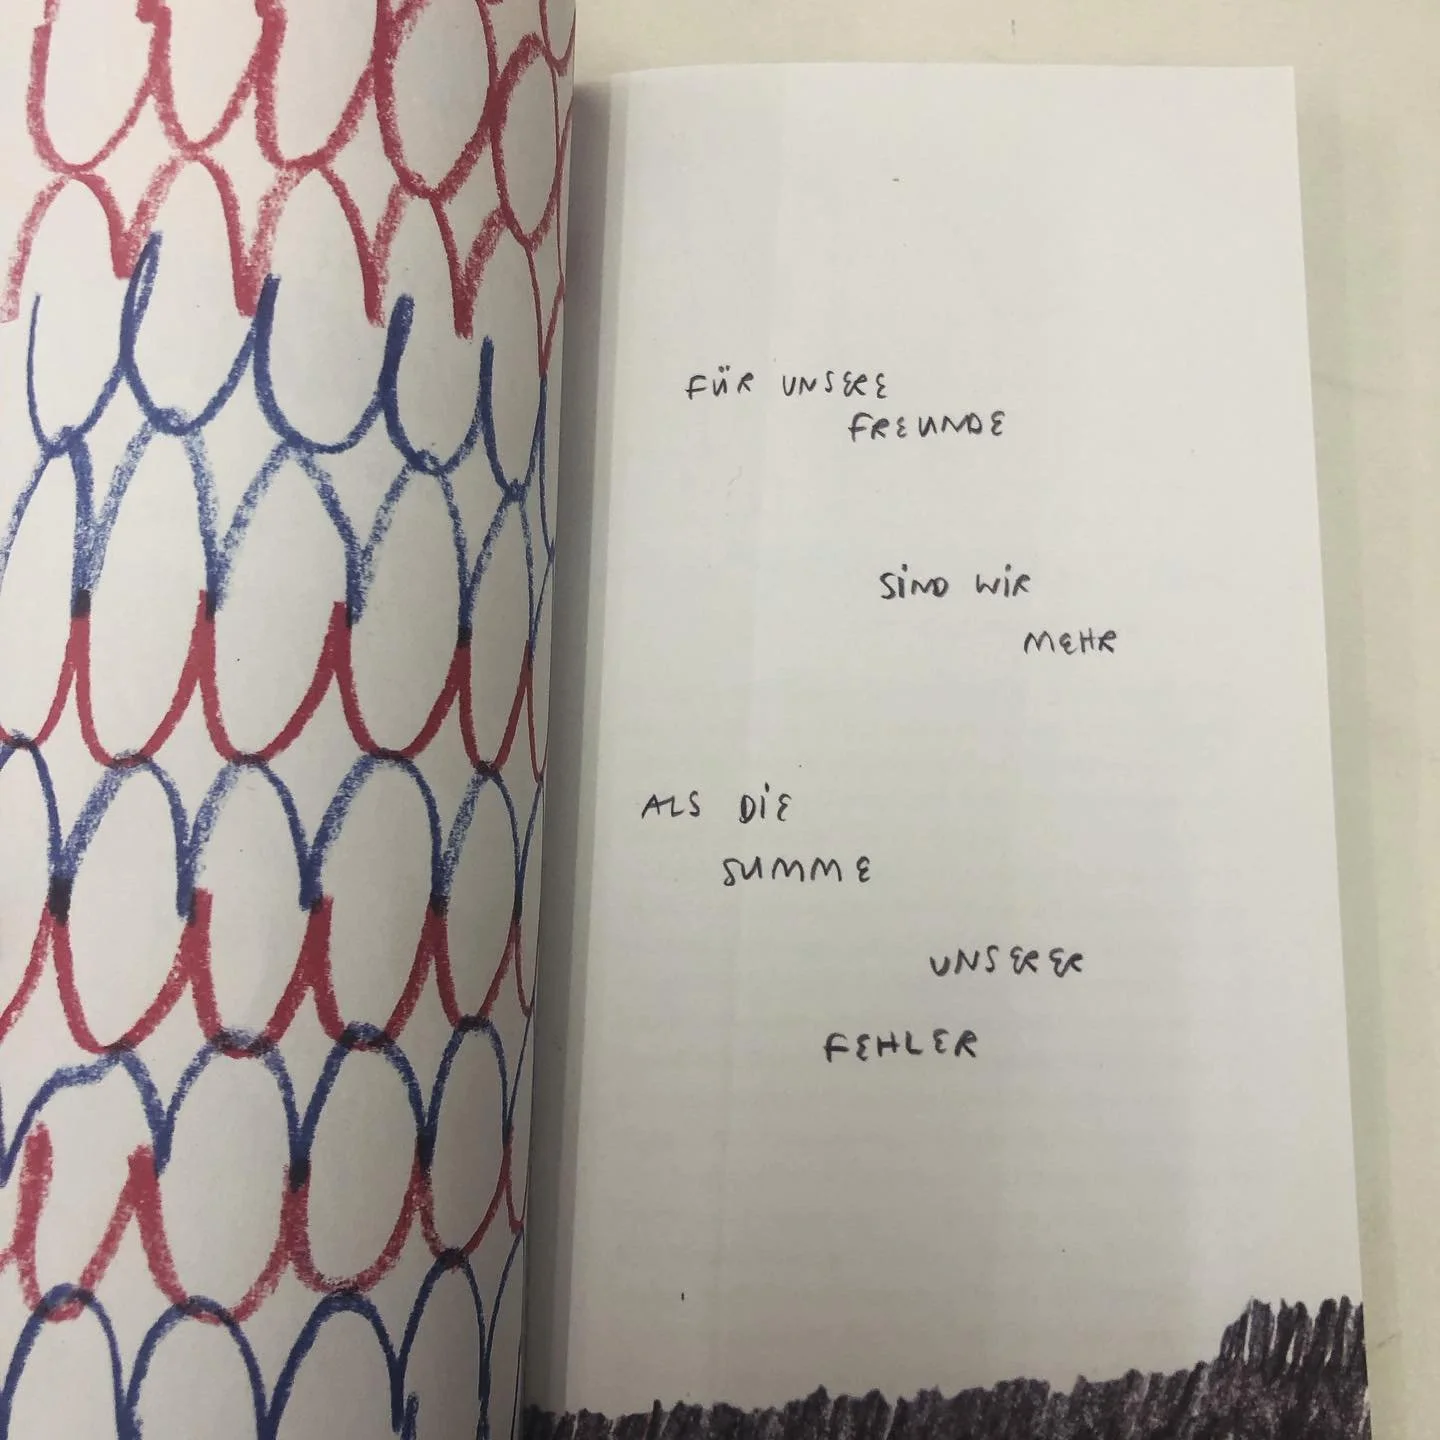 FÜR UNSERE
FREUNDE
SIND WIR
MEHR
ALS DIE
SUMME
UNSERER
FEHLER